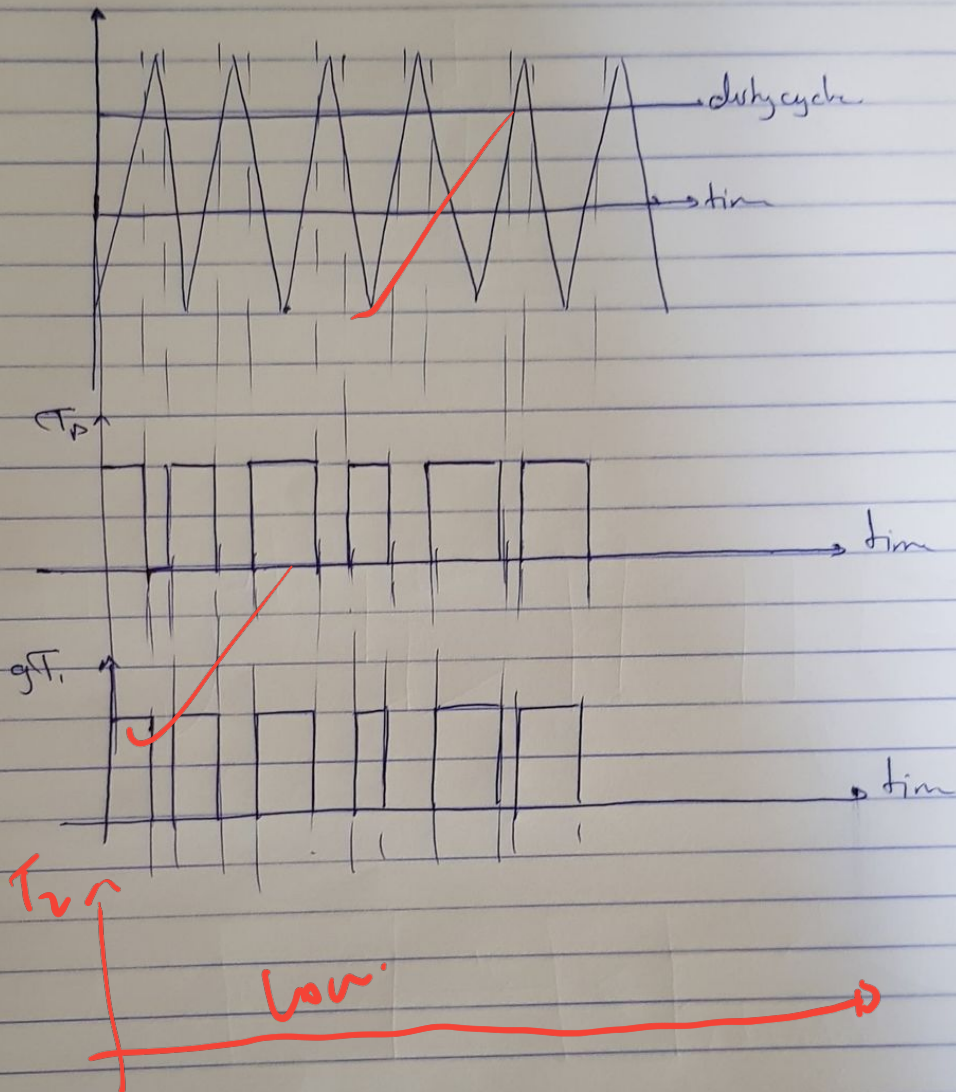 duty cycle
time
TD
time
gT1
time
T2
Low.